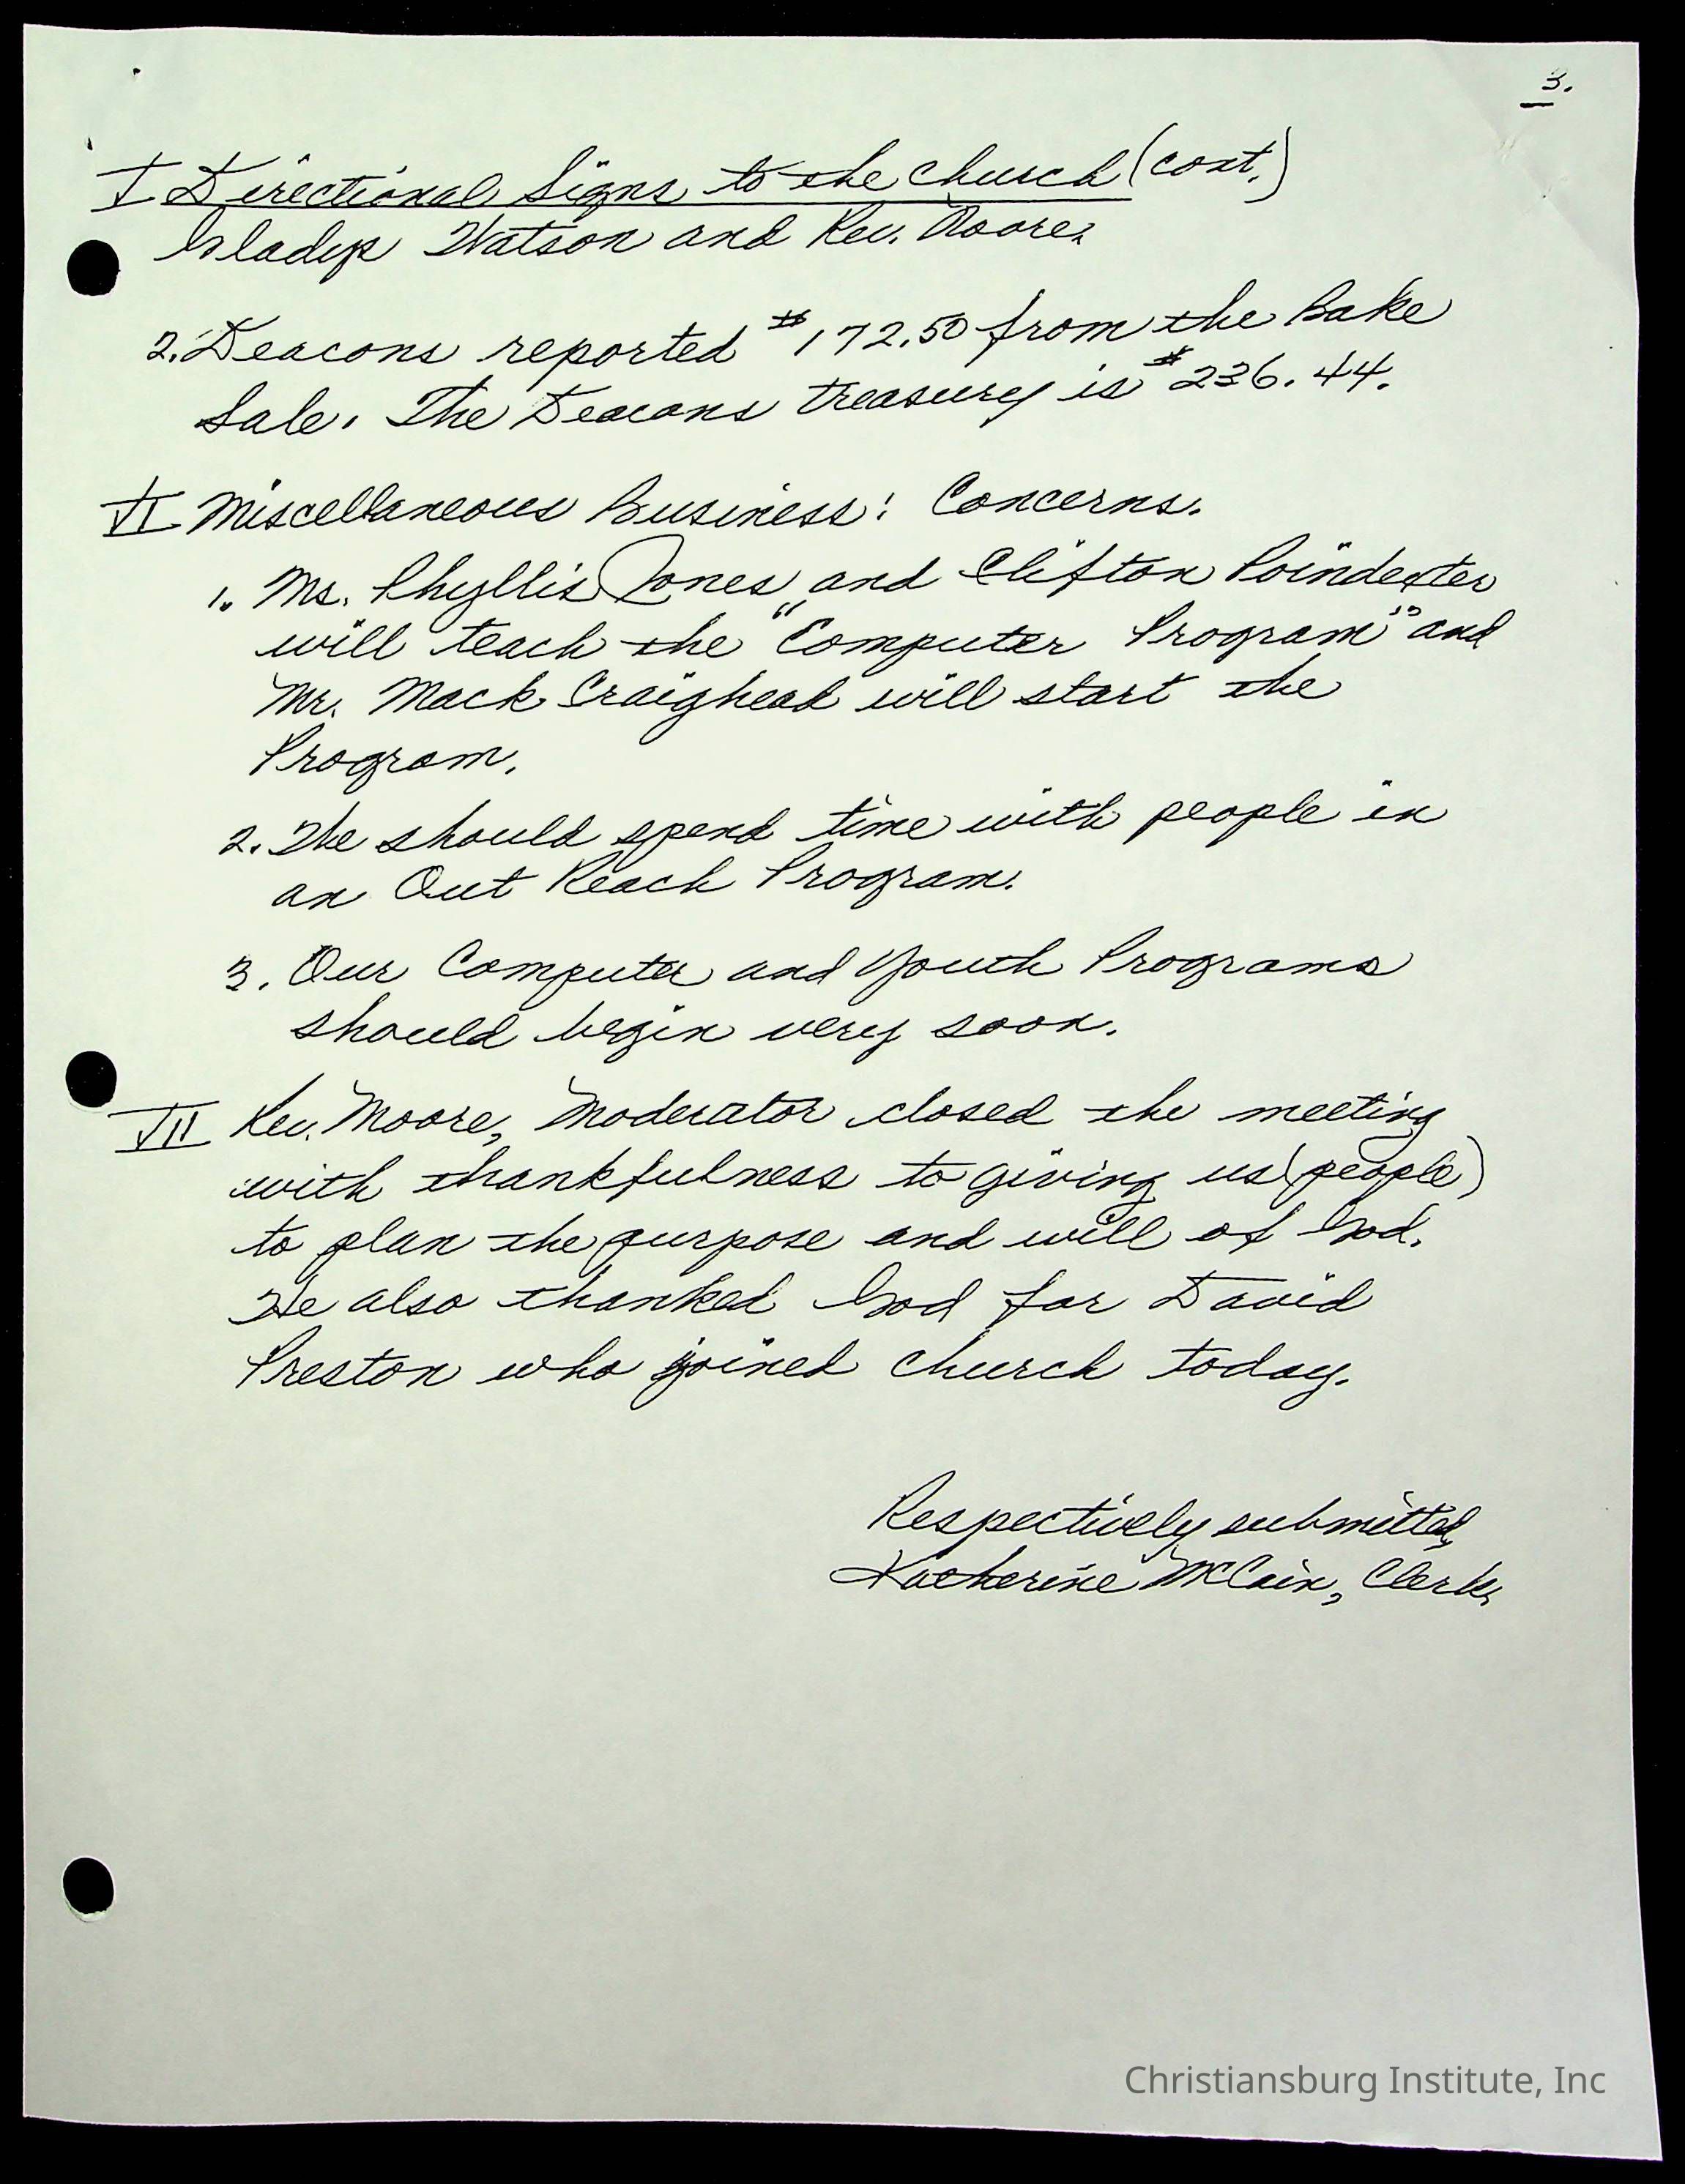 3.
V Directional Signs to the Church (cont.)
Gladys Watson and Rev. Moore.
2. Deacons reported $172.50 from the Bake
Sale. The Deacons treasury is $236.44.
VI Miscellaneous Business: Concerns.
1. Ms. Phyllis Jones and Clifton Poindexter
will teach the "Computer Program" and
Mr. Mack Craighead will start the
Program.
2. We should spend time with people in
an Out Reach Program.
3. Our Computer and Youth Programs
should begin very soon.
VII Rev. Moore, Moderator closed the meeting
with thankfulness to giving us (people)
to plan the purpose and will of God.
He also thanked God for David
Preston who joined church today.
Respectively submitted,
Katherine McCain, Clerk
Christiansburg Institute, Inc